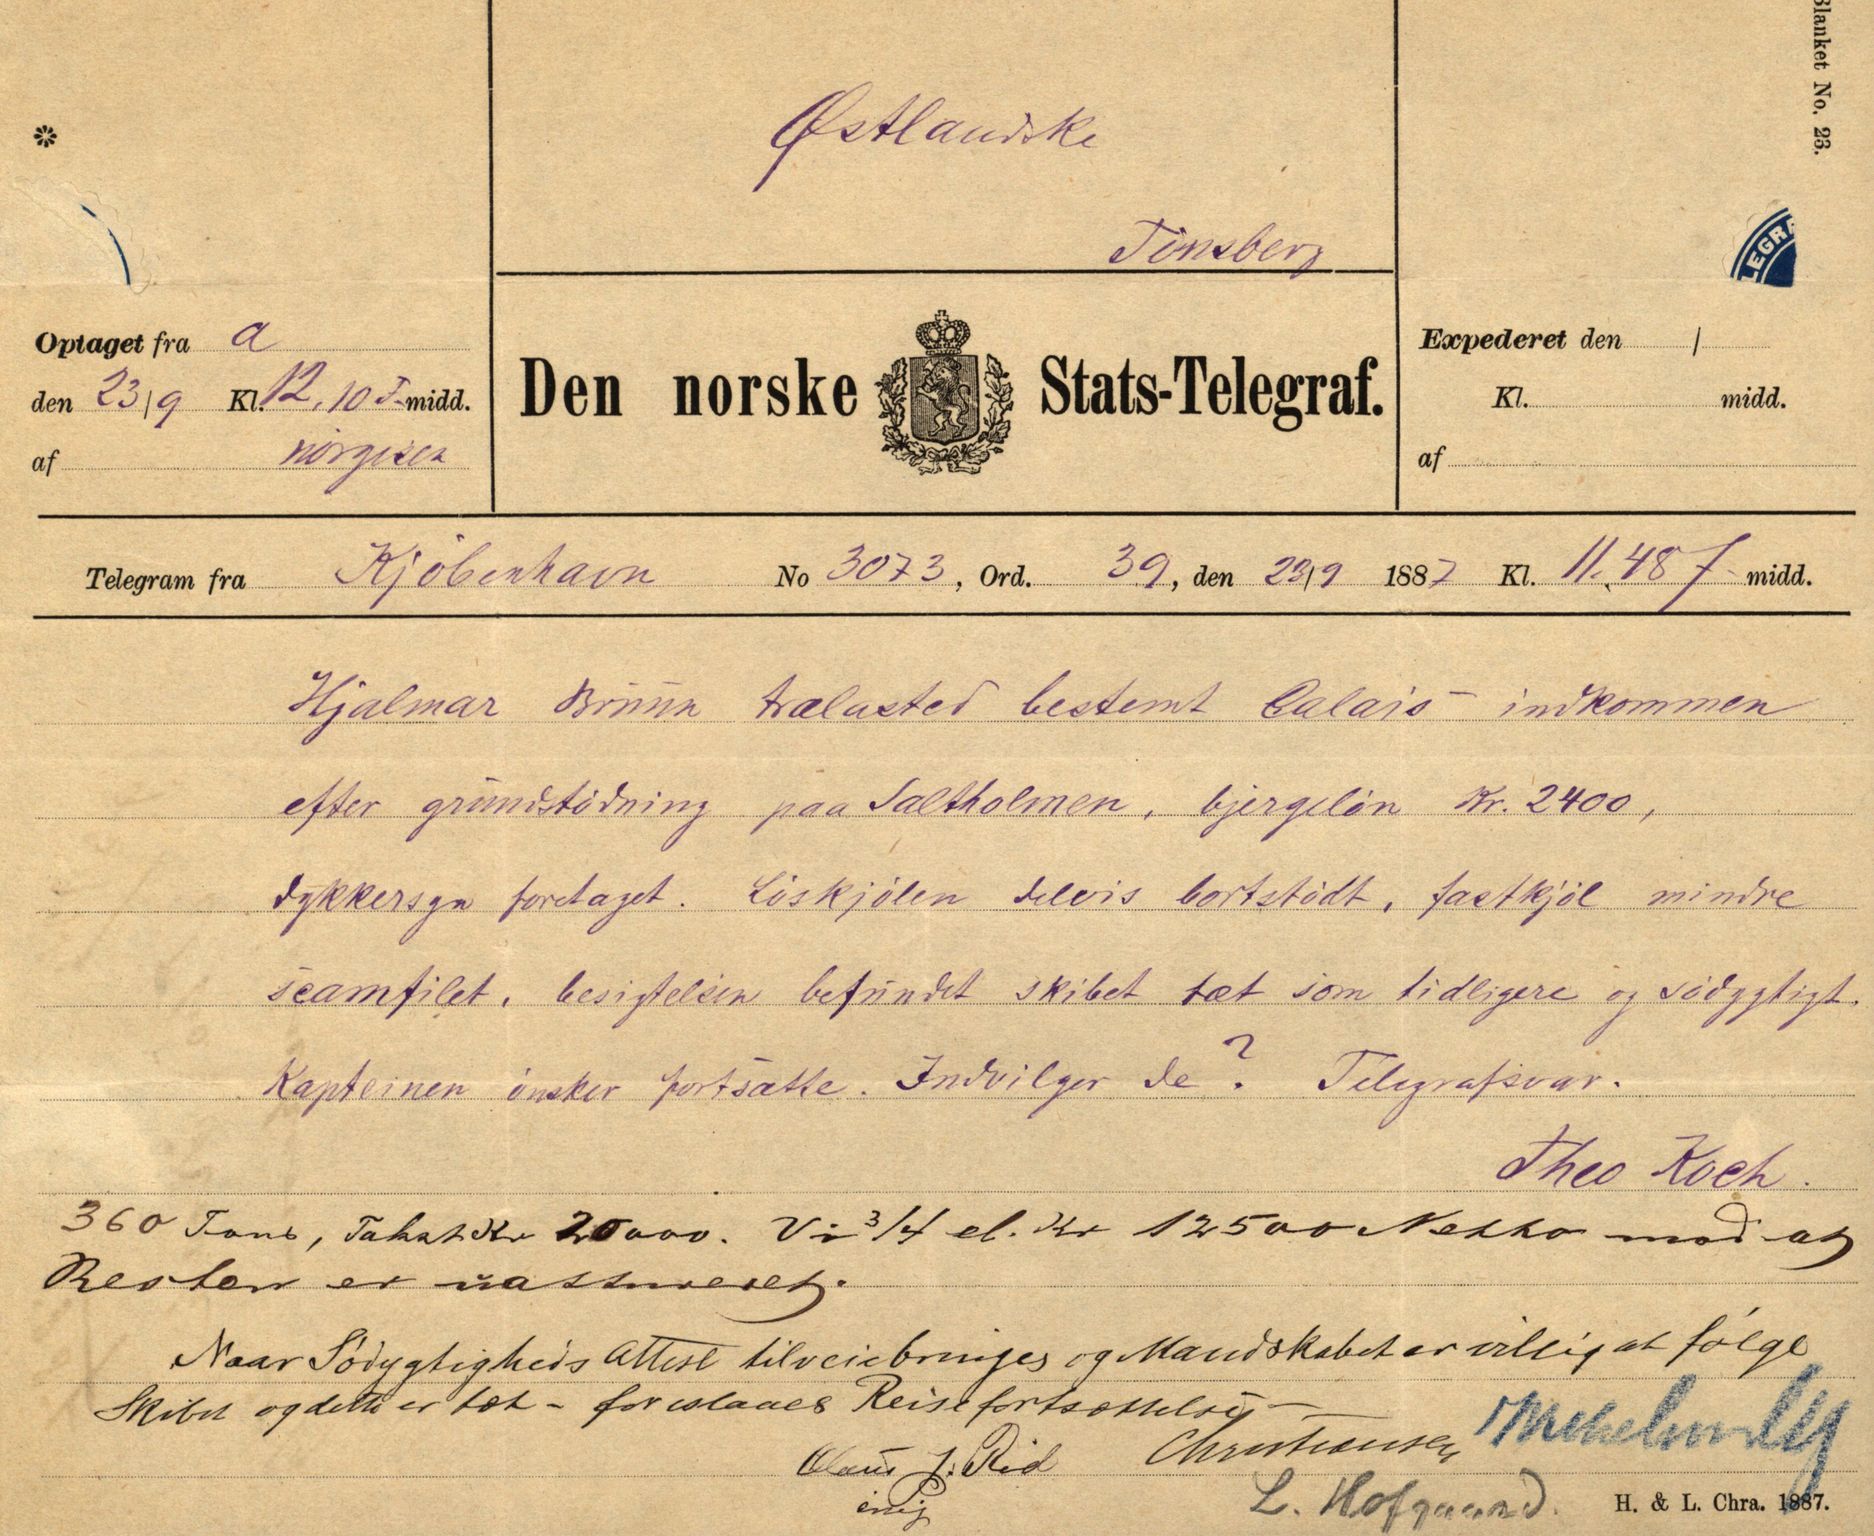 Blanket No. 23.
Østlandske
Tönsberg
LEGRA
Optaget fra a
den 23/9 Kl. 12,10 F-midd.
af nörgisen
Den norske Stats-Telegraf.
Expederet den /
Kl. midd.
af
Telegram fra Kjöbenhavn No 3073, Ord. 39, den 23/9 1887 Kl. 11,48 f-midd.
Hjalmar Bruun trælasted bestemt Calais indkommen
efter grundstödning paa Saltholmen, bjergelön Kr. 2400,
dykkersyn foretaget. Löskjölen delvis bortstödt, fastkjöl mindre
scamfilet, besigtelsen befundet skibet tæt som tidligere og södygtigt.
Kapteinen önsker fortsætte. Indvilger de? Telegrafsvar.
Theo Koch.
360 Tons, Takst Kr 20000. Vi 3/4 el. Kr 12500 Netto mod at
Resten er uassureret.
Naar Södygtigheds Attest tilveiebringes og Mandskabet er villig at følge
Skibet og dette er tæt - foreslaaes Reisefortsættelse -
Claus J. Rid Christiansen
enig L. Hofgaard.
H. & L. Chra. 1887.